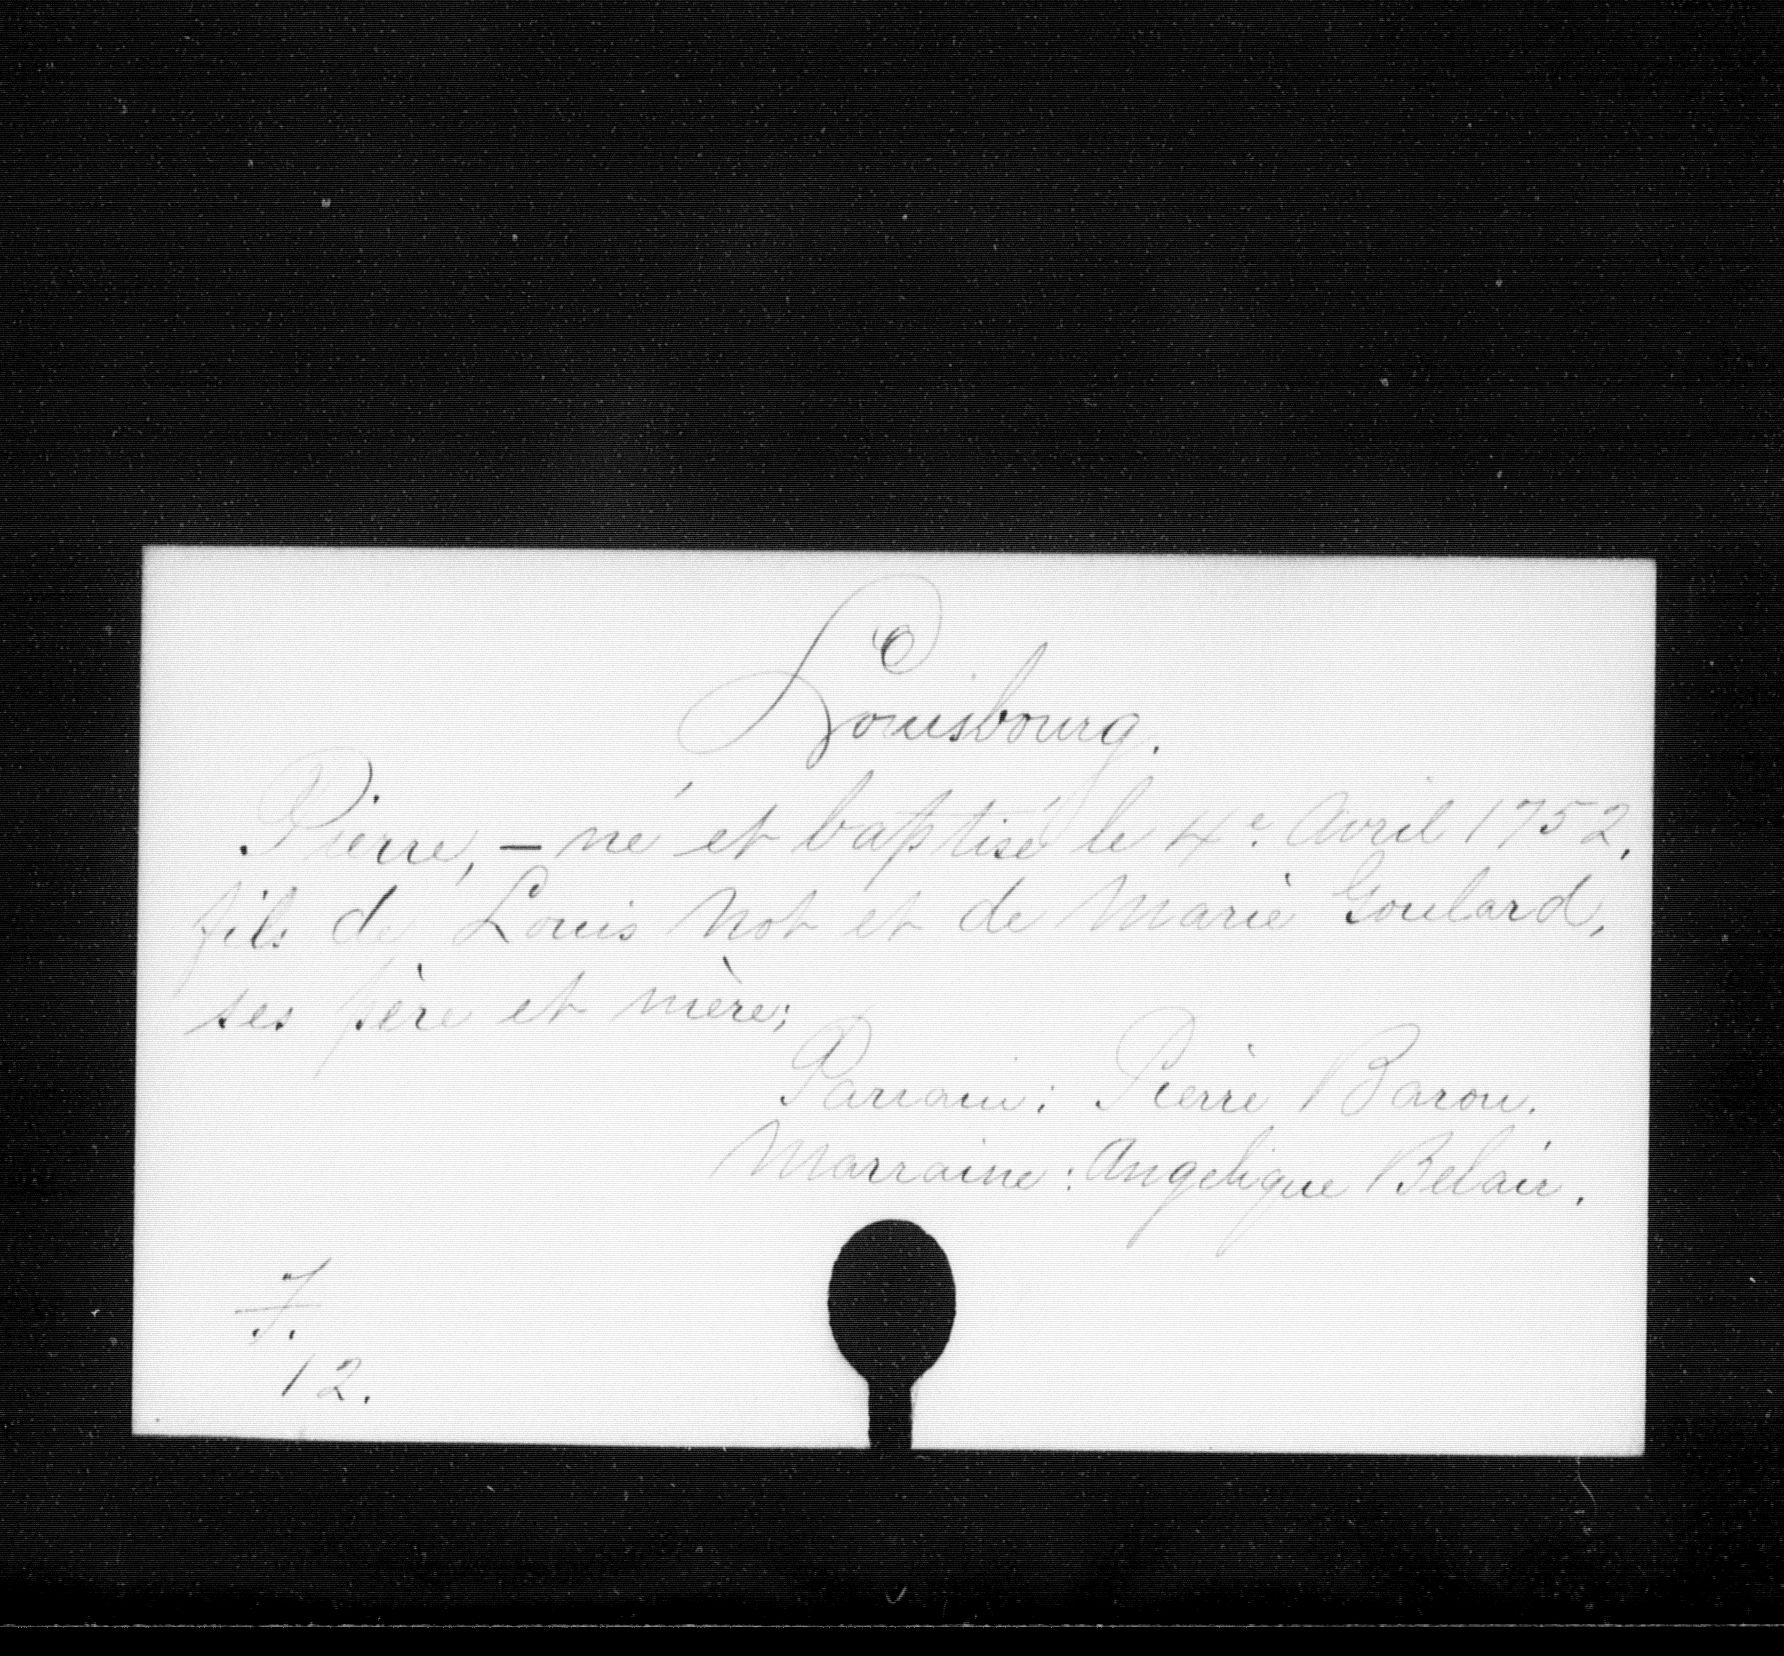 Louisbourg.
Pierre, — né et baptisé le 4e. Avril 1752,
fils de Louis Not et de Marie Goulard,
ses père et mère;
Parrain: Pierre Baron.
Marraine: Angelique Belair.
F.
12.